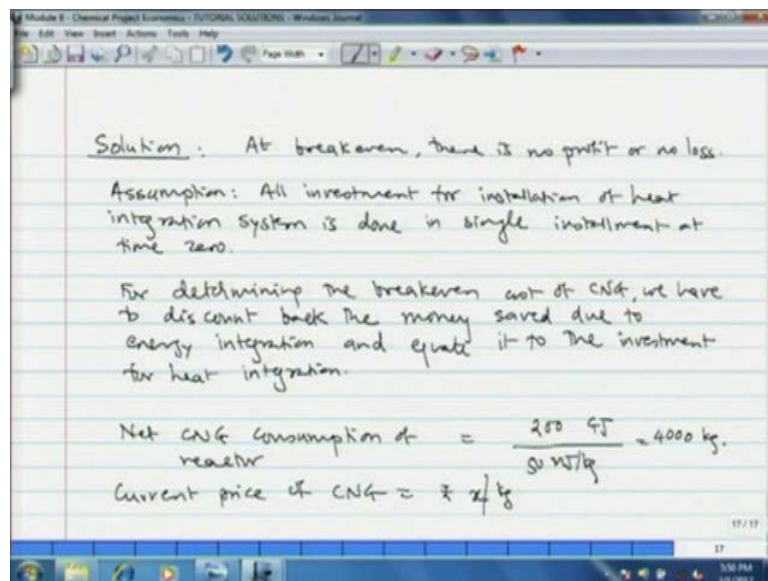 Module 8 - Chemical Project Economics - TUTORIAL SOLUTIONS - Windows Journal
File Edit View Insert Actions Tools Help
Page Width
Solution : At breakeven, there is no profit or no loss.
Assumption: All investment for installation of heat
integration system is done in single installment at
time zero.
For determining the breakeven cost of CNG, we have
to discount back the money saved due to
energy integration and equate it to the investment
for heat integration.
Net CNG consumption of reactor = 200 GJ / 50 MJ/kg = 4000 kg.
Current price of CNG = ₹ x/kg
17/17
17
3:50 PM